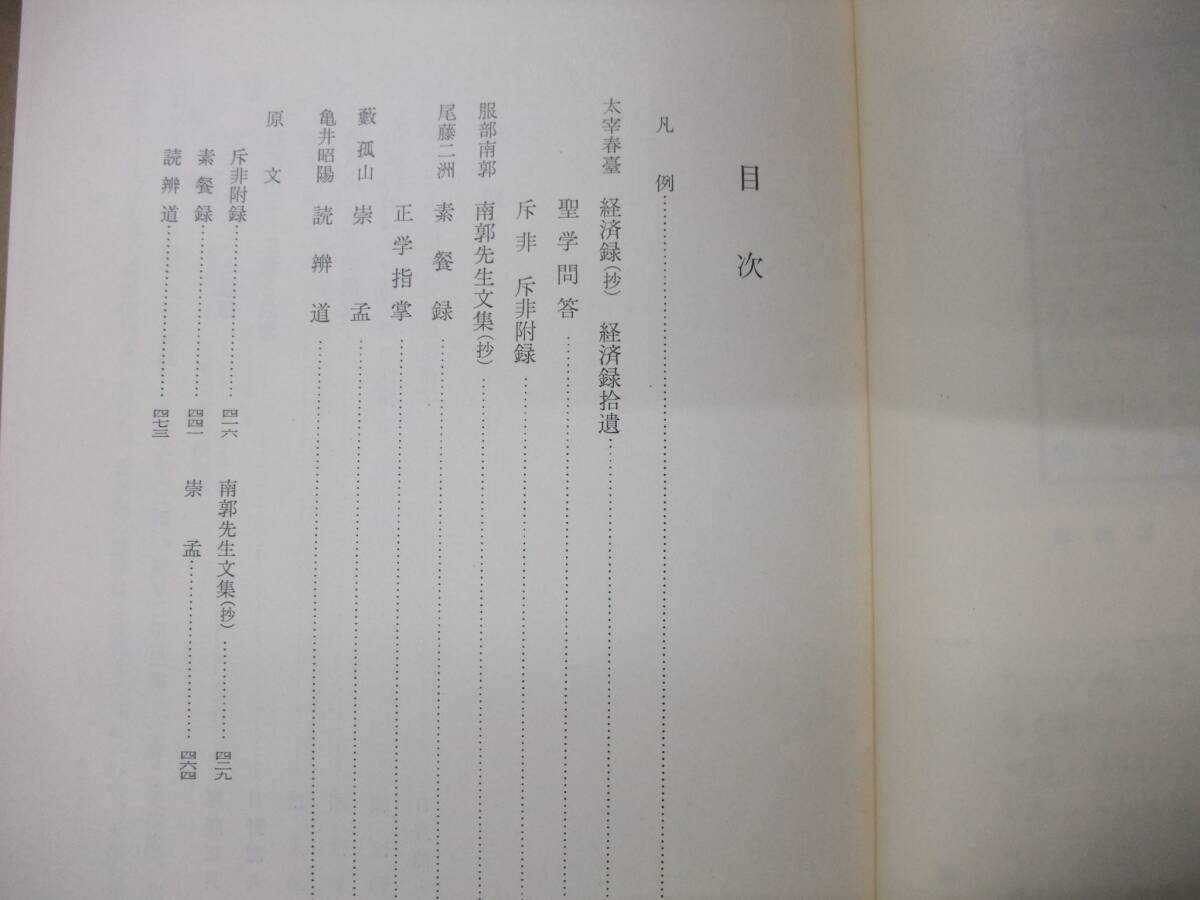 目次
凡例
太宰春臺 経済録(抄) 経済録拾遺
聖学問答
斥非 斥非附録
服部南郭 南郭先生文集(抄)
尾藤二洲 素餐録
正学指掌
藪孤山 崇孟
亀井昭陽 読辨道
原文
斥非附録 四一六 南郭先生文集(抄) 四二九
素餐録 四四一 崇孟 四六四
読辨道 四七三